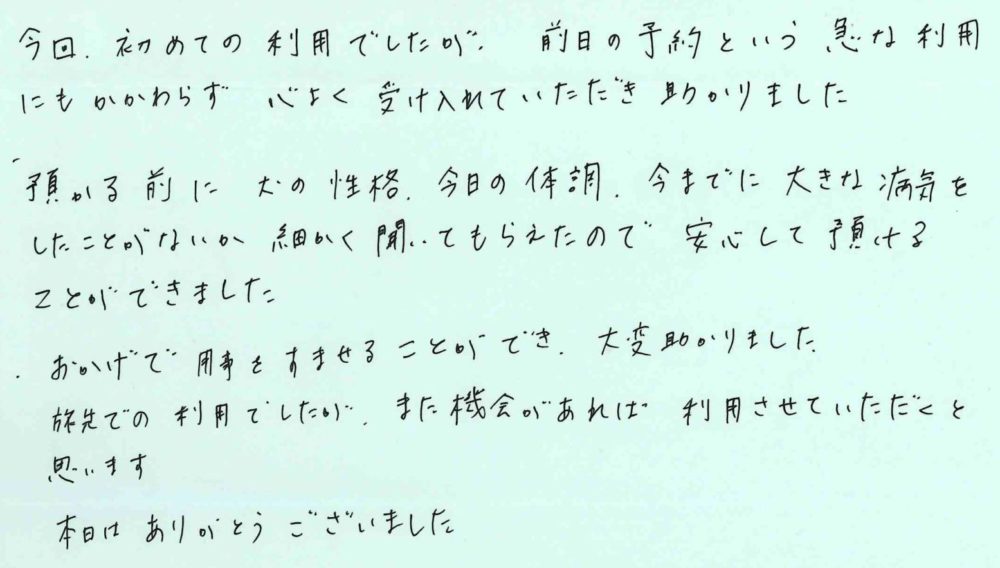 今回、初めての利用でしたが、前日の予約という急な利用
にもかかわらず 心よく受け入れていただき助かりました
預かる前に 犬の性格、今日の体調、今までに大きな病気を
したことがないか 細かく聞いてもらえたので 安心して預ける
ことができました
おかげで用事をすませることができ、大変助かりました
旅先での利用でしたが、また機会があれば 利用させていただくと
思います
本日は ありがとうございました